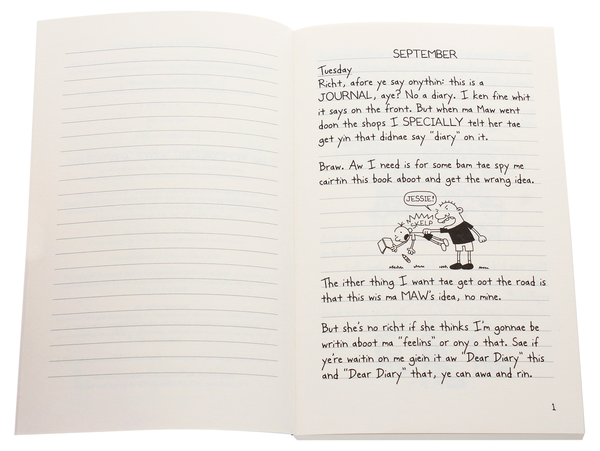 SEPTEMBER
Tuesday
Richt, afore ye say onythin: this is a
JOURNAL, aye? No a diary. I ken fine whit
it says on the front. But when ma Maw went
doon the shops I SPECIALLY telt her tae
get yin that didnae say "diary" on it.
Braw. Aw I need is for some bam tae spy me
cairtin this book aboot and get the wrang idea.
JESSIE!
SKELP
The ither thing I want tae get oot the road is
that this wis ma MAW's idea, no mine.
But she's no richt if she thinks I'm gonnae be
writin aboot ma "feelins" or ony o that. Sae if
ye're waitin on me giein it aw "Dear Diary" this
and "Dear Diary" that, ye can awa and rin.
1